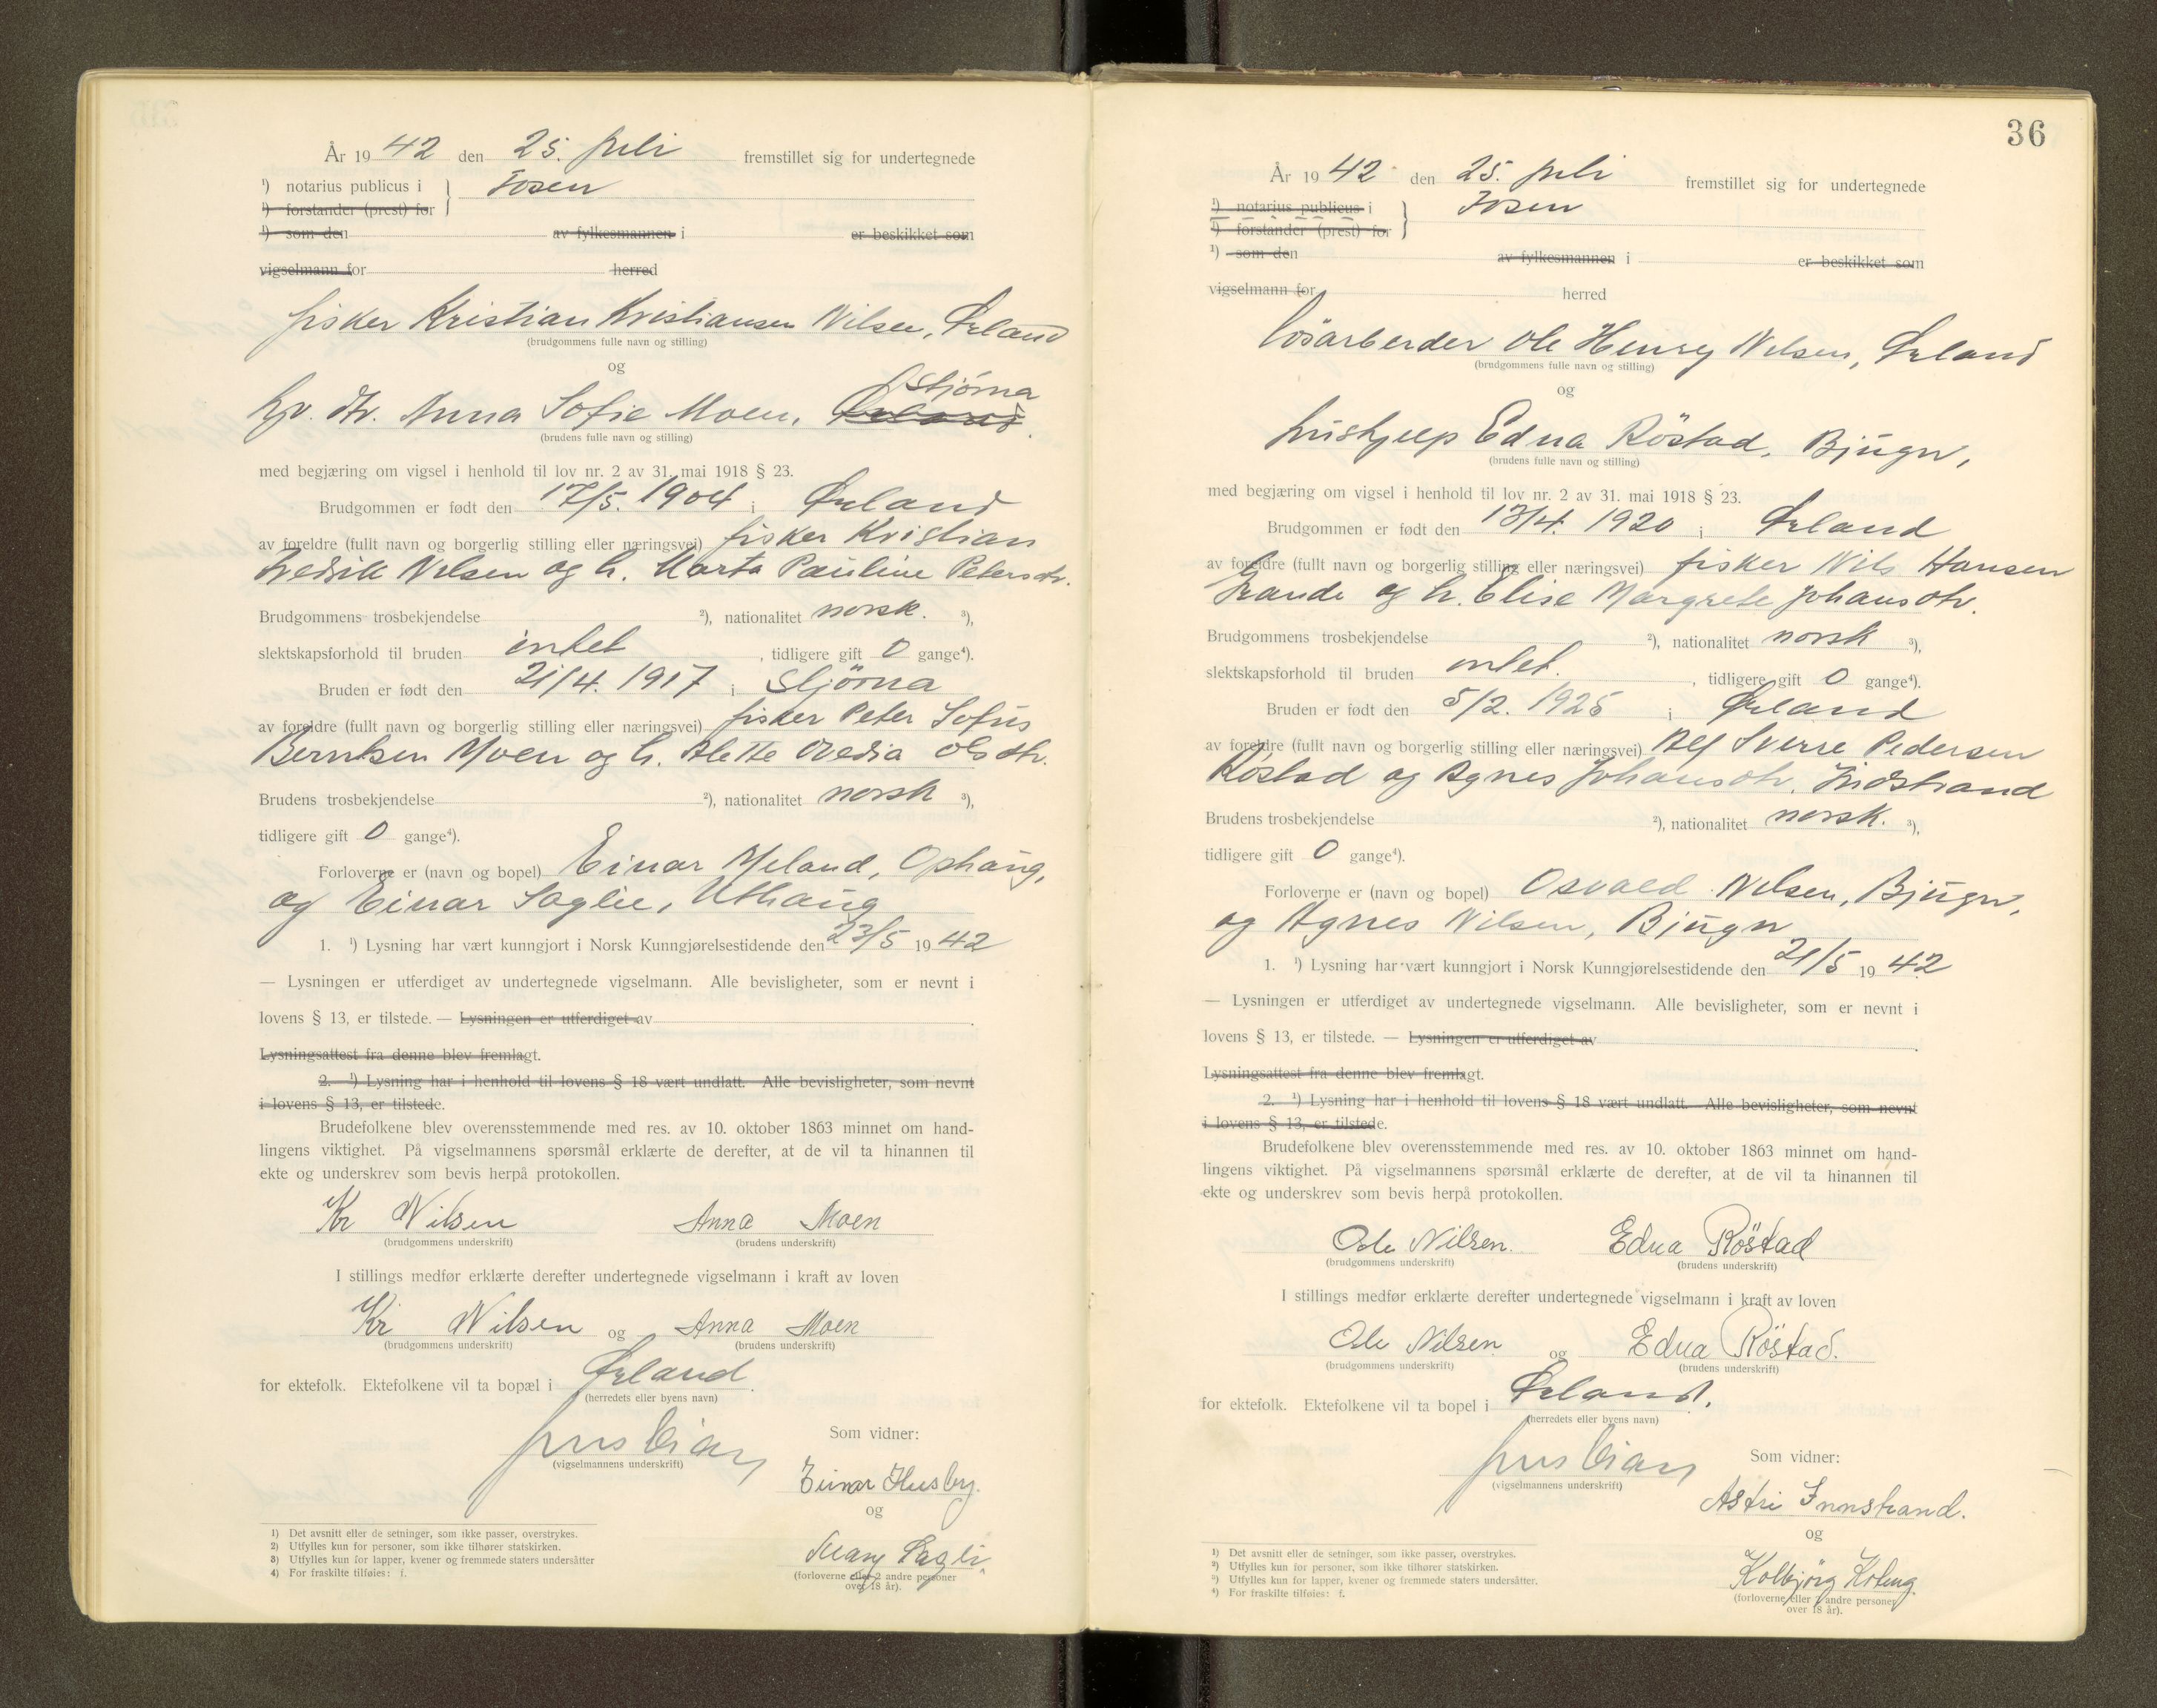 År 19 42 den 25. juli fremstillet sig for undertegnede
¹) notarius publicus i } Fosen
¹) forstander (prest) for
¹) som den av fylkesmannen i er beskikket som
vigselmann for herred
fisker Kristian Kristiansen Nilsen, Ørland
(brudgommens fulle navn og stilling)
og
Stjørna
hjv. dtr. Anna Sofie Moen, Ørland.
(brudens fulle navn og stilling)
med begjæring om vigsel i henhold til lov nr. 2 av 31. mai 1918 § 23.
Brudgommen er født den 17/5. 1904 i Ørland
av foreldre (fullt navn og borgerlig stilling eller næringsvei) fisker Kristian
Fredrik Nilsen og h. Marta Pauline Petersdtr.
Brudgommens trosbekjendelse ²), nationalitet norsk. ³),
slektskapsforhold til bruden intet, tidligere gift 0 gange⁴).
Bruden er født den 21/4. 1917 i Stjörna
av foreldre (fullt navn og borgerlig stilling eller næringsvei) fisker Peter Sofus
Berntsen Moen og h. Alette Ovedia Olsdtr.
Brudens trosbekjendelse ²), nationalitet norsk ³),
tidligere gift 0 gange⁴).
Forloverne er (navn og bopel) Einar Meland, Ophaug,
og Einar Saglie, Uthaug
1. ¹) Lysning har vært kunngjort i Norsk Kunngjørelsestidende den 23/5 19 42
— Lysningen er utferdiget av undertegnede vigselmann. Alle bevisligheter, som er nevnt i
lovens § 13, er tilstede. — Lysningen er utferdiget av .
Lysningsattest fra denne blev fremlagt.
2. ¹) Lysning har i henhold til lovens § 18 vært undlatt. Alle bevisligheter, som nevnt
i lovens § 13, er tilstede.
Brudefolkene blev overensstemmende med res. av 10. oktober 1863 minnet om hand-
lingens viktighet. På vigselmannens spørsmål erklærte de derefter, at de vil ta hinannen til
ekte og underskrev som bevis herpå protokollen.
Kr Nilsen Anna Moen
(brudgommens underskrift) (brudens underskrift)
I stillings medfør erklærte derefter undertegnede vigselmann i kraft av loven
Kr Nilsen og Anna Moen
(brudgommens underskrift) (brudens underskrift)
for ektefolk. Ektefolkene vil ta bopæl i Ørland.
(herredets eller byens navn)
Som vidner:
(vigselmannens underskrift)
Einar Husby.
og
Mary Sagli.
(forloverne eller 2 andre personer
over 18 år).
1) Det avsnitt eller de setninger, som ikke passer, overstrykes.
2) Utfylles kun for personer, som ikke tilhører statskirken.
3) Utfylles kun for lapper, kvener og fremmede staters undersåtter
4) For fraskilte tilføies: f.
36
År 19 42 den 25. juli fremstillet sig for undertegnede
¹) notarius publicus i } Fosen
¹) forstander (prest) for
¹) som den av fylkesmannen i er beskikket som
vigselmann for herred
løsarbeider Ole Henry Nilsen, Ørland
(brudgommens fulle navn og stilling)
og
hushjelp Edna Röstad, Bjugn,
(brudens fulle navn og stilling)
med begjæring om vigsel i henhold til lov nr. 2 av 31. mai 1918 § 23.
Brudgommen er født den 13/4. 1920 i Ørland
av foreldre (fullt navn og borgerlig stilling eller næringsvei) fisker Nils Hansen
Grande og h. Elise Margrete Johansdtr.
Brudgommens trosbekjendelse ²), nationalitet norsk ³),
slektskapsforhold til bruden intet., tidligere gift 0 gange⁴).
Bruden er født den 5/2. 1925 i Ørland
av foreldre (fullt navn og borgerlig stilling eller næringsvei) Alf Sverre Pedersen
Röstad og Agnes Johansdtr. Indstrand
Brudens trosbekjendelse ²), nationalitet norsk. ³),
tidligere gift 0 gange⁴).
Forloverne er (navn og bopel) Osvald Nilsen, Bjugn,
og Agnes Nilsen, Bjugn
1. ¹) Lysning har vært kunngjort i Norsk Kunngjørelsestidende den 21/5 19 42
— Lysningen er utferdiget av undertegnede vigselmann. Alle bevisligheter, som er nevnt i
lovens § 13, er tilstede. — Lysningen er utferdiget av .
Lysningsattest fra denne blev fremlagt.
2. ¹) Lysning har i henhold til lovens § 18 vært undlatt. Alle bevisligheter, som nevnt
i lovens § 13, er tilstede.
Brudefolkene blev overensstemmende med res. av 10. oktober 1863 minnet om hand-
lingens viktighet. På vigselmannens spørsmål erklærte de derefter, at de vil ta hinannen til
ekte og underskrev som bevis herpå protokollen.
Ole Nilsen. Edna Röstad
(brudgommens underskrift) (brudens underskrift)
I stillings medfør erklærte derefter undertegnede vigselmann i kraft av loven
Ole Nilsen og Edna Röstad.
(brudgommens underskrift) (brudens underskrift)
for ektefolk. Ektefolkene vil ta bopel i Ørland.
(herredets eller byens navn)
Som vidner:
(vigselmannens underskrift)
Astri Innstrand.
og
Kolbjörg
(forloverne eller 2 andre personer
over 18 år).
¹) Det avsnitt eller de setninger, som ikke passer, overstrykes.
²) Utfylles kun for personer, som ikke tilhører statskirken.
³) Utfylles kun for lapper, kvener og fremmede staters undersåtter.
⁴) For fraskilte tilføies: f.